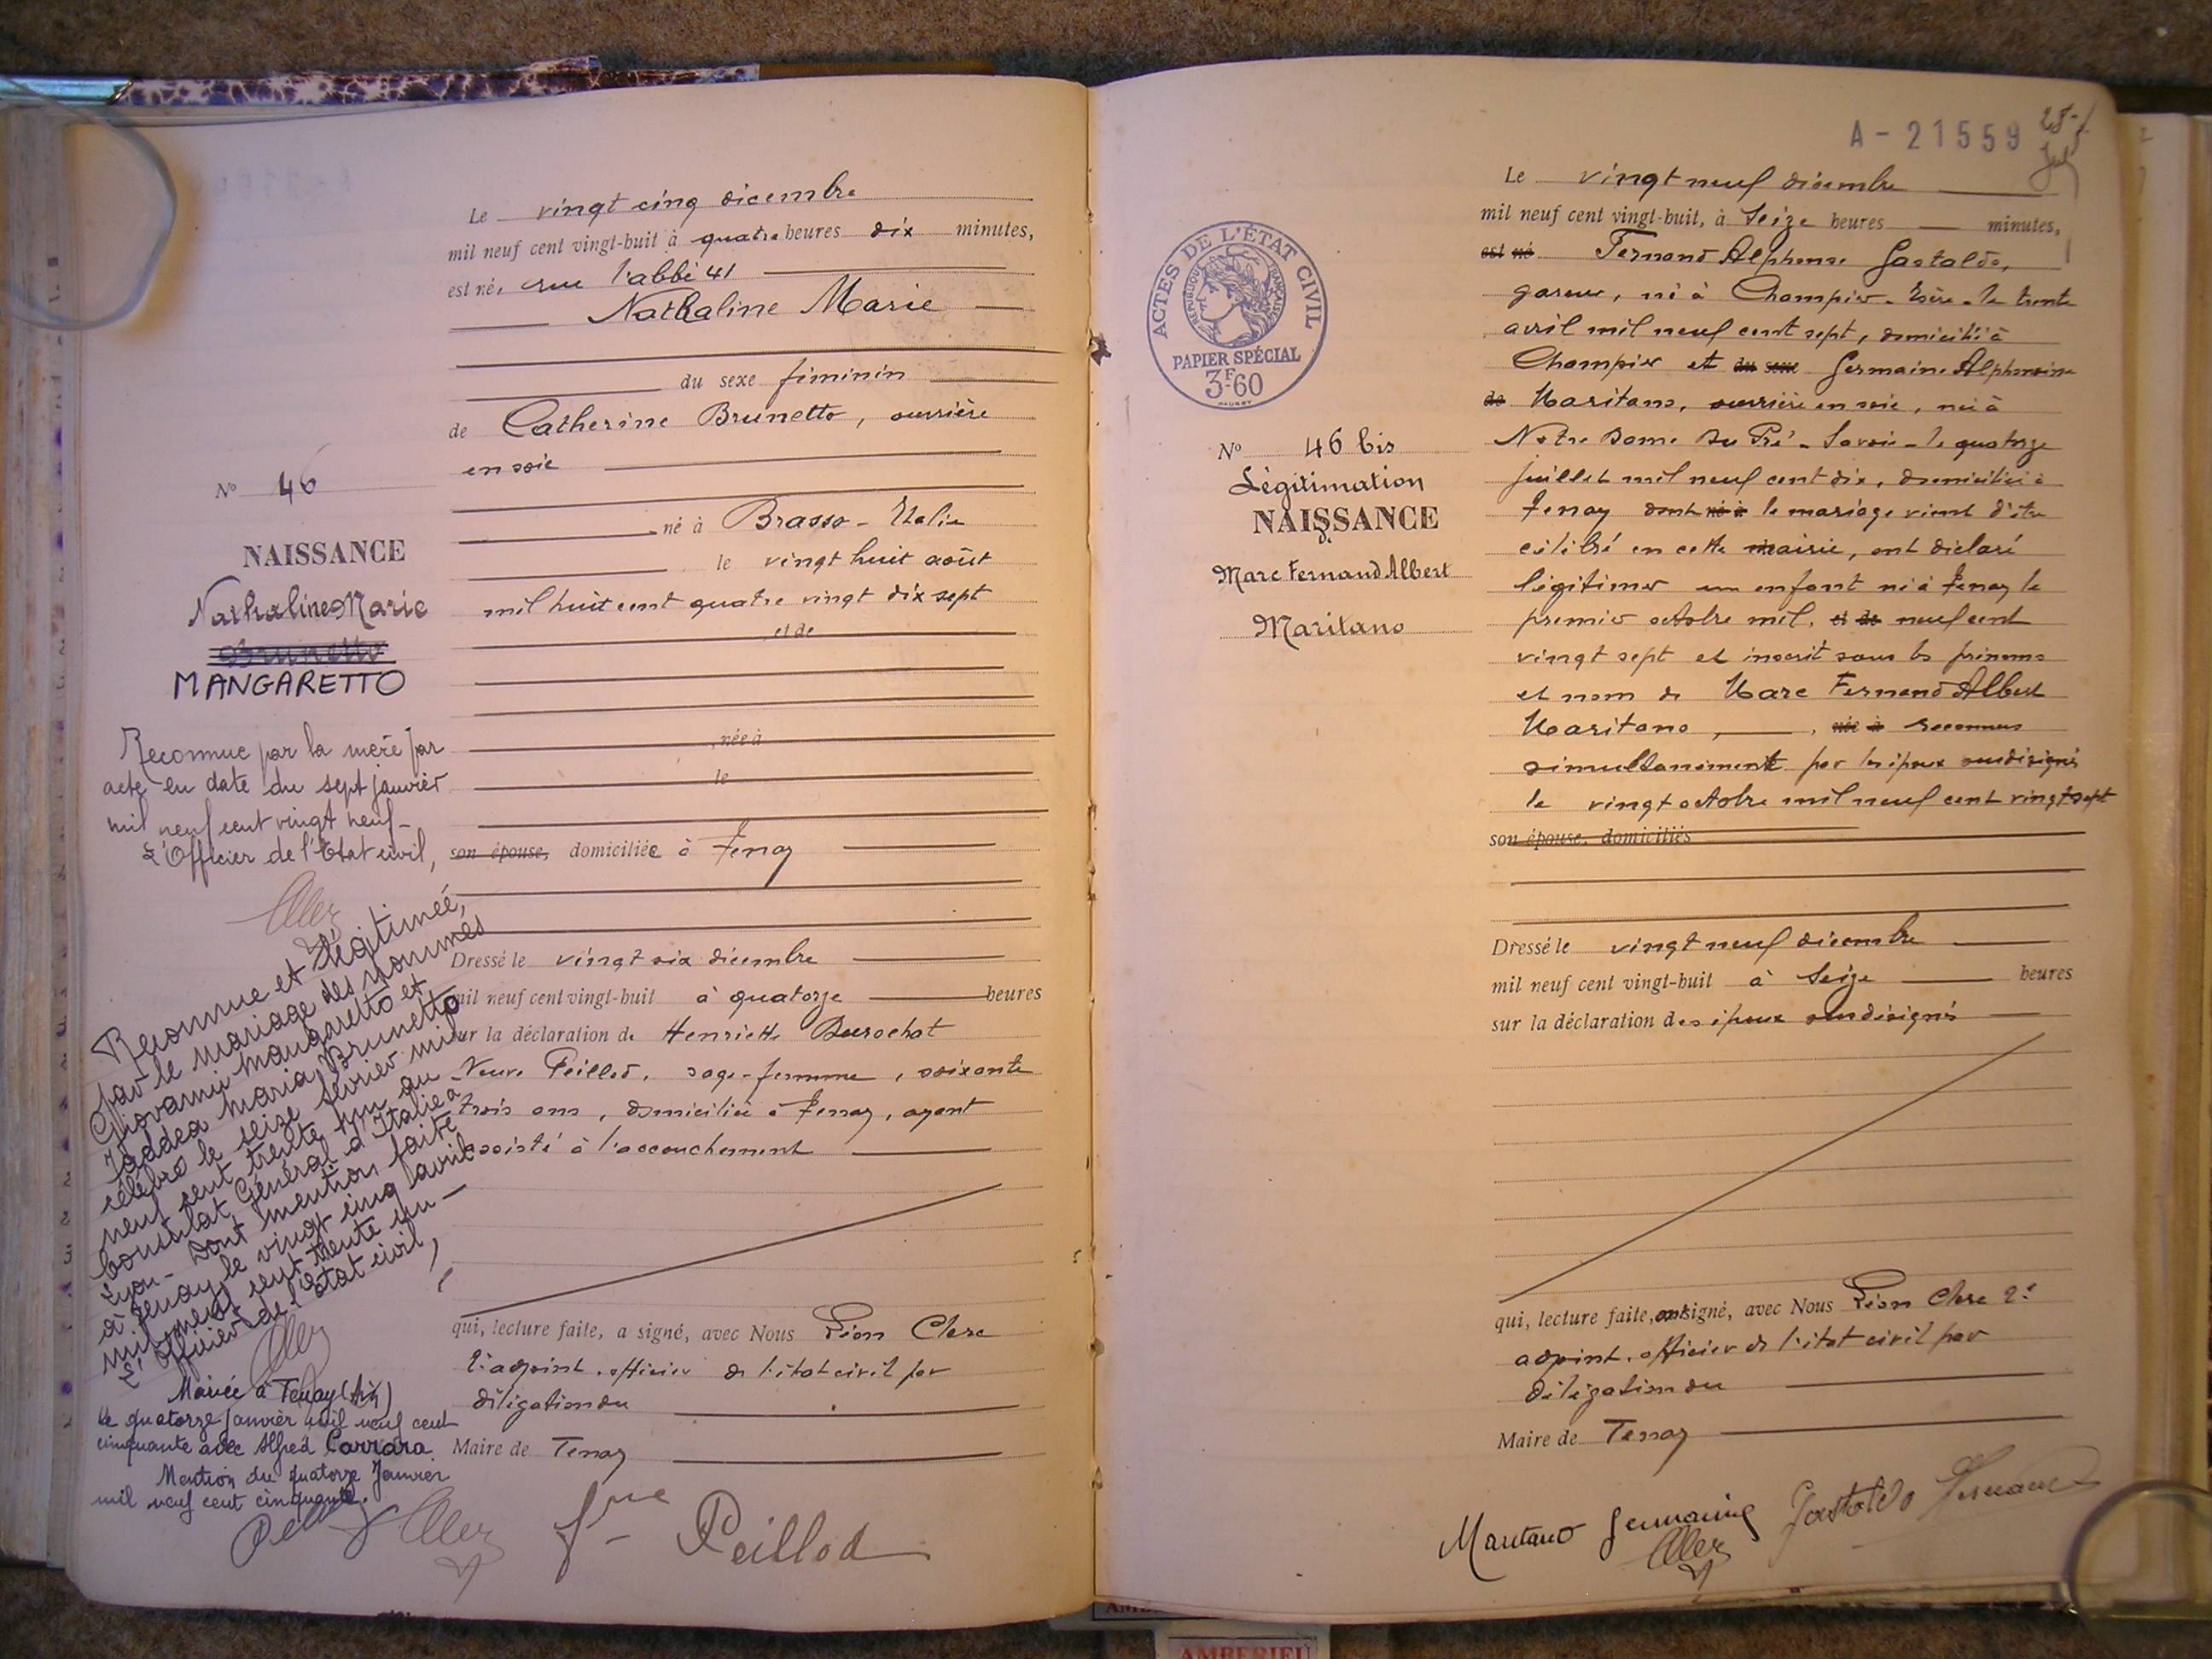 Le vingt cinq décembre
mil neuf cent vingt-huit à quatre heures dix minutes,
est né, rue l'abbé 41
Nathaline Marie
du sexe féminin
de Catherine Brunetto, ouvrière
en soie
né à Brasso - Italie
le vingt huit août
mil huit cent quatre vingt dix sept
et de
, née à
le
son épouse, domiciliée à Tenay
Dressé le vingt six décembre
mil neuf cent vingt-huit à quatorze heures
sur la déclaration de Henriette Durochat
Veuve Peillod, sage-femme, soixante
trois ans, domiciliée à Tenay, ayant
assisté à l'accouchement
qui, lecture faite, a signé, avec Nous Léon Clerc
2e adjoint, officier de l'état civil par
délégation du
Maire de Tenay
Peillod
No 46
NAISSANCE
Nathaline Marie
Brunetto
MANGARETTO
Reconnue par la mère par
acte en date du sept janvier
mil neuf cent vingt neuf -
L'Officier de l'Etat civil,
Reconnue et légitimée,
par le mariage des nommés
Giovanni Mangaretto et
Taddea Maria Brunetto
célébré le seize février mil
neuf cent trente un au
Consulat Général d'Italie à
Lyon - Dont mention faite
à Tenay, le vingt cinq avril
mil neuf cent trente un -
L'Officier de l'état civil,
Mariée à Tenay (Ain)
le quatorze janvier mil neuf cent
cinquante avec Alfred Carrara
Mention du quatorze Janvier
mil neuf cent cinquante.
A - 21559
ACTES DE L'ÉTAT CIVIL
RÉPUBLIQUE FRANÇAISE
PAPIER SPÉCIAL
3F60
No 46 bis
Légitimation
NAISSANCE
de
Marc Fernand Albert
Maritano
Le vingt neuf décembre
mil neuf cent vingt-huit, à Seize heures minutes,
est né Fernand Alphonse Gastaldo,
gareur, né à Champier - Isère - le trente
avril mil neuf cent sept, domicilié à
Champier et du sexe Germaine Alphonsine
de Maritano, ouvrière en soie, née à
Notre Dame du Pré - Savoie - le quatorze
juillet mil neuf cent dix, domiciliée à
Tenay dont né à le mariage vient d'être
célébré en cette mairie, ont déclaré
légitimer un enfant né à Tenay le
premier octobre mil, et de neuf cent
vingt sept et inscrit sous les prénoms
et nom de Marc Fernand Albert
Maritano, , née à reconnu
simultanément par les époux susdésignés
le vingt octobre mil neuf cent vingt sept
son épouse, domiciliés
Dressé le vingt neuf décembre
mil neuf cent vingt-huit à Seize heures
sur la déclaration des époux susdésignés
qui, lecture faite, ont signé, avec Nous Léon Clerc 2e
adjoint, officier de l'état civil par
délégation du
Maire de Tenay
Maritano Germaine Gastaldo Fernand
AMBERIEU